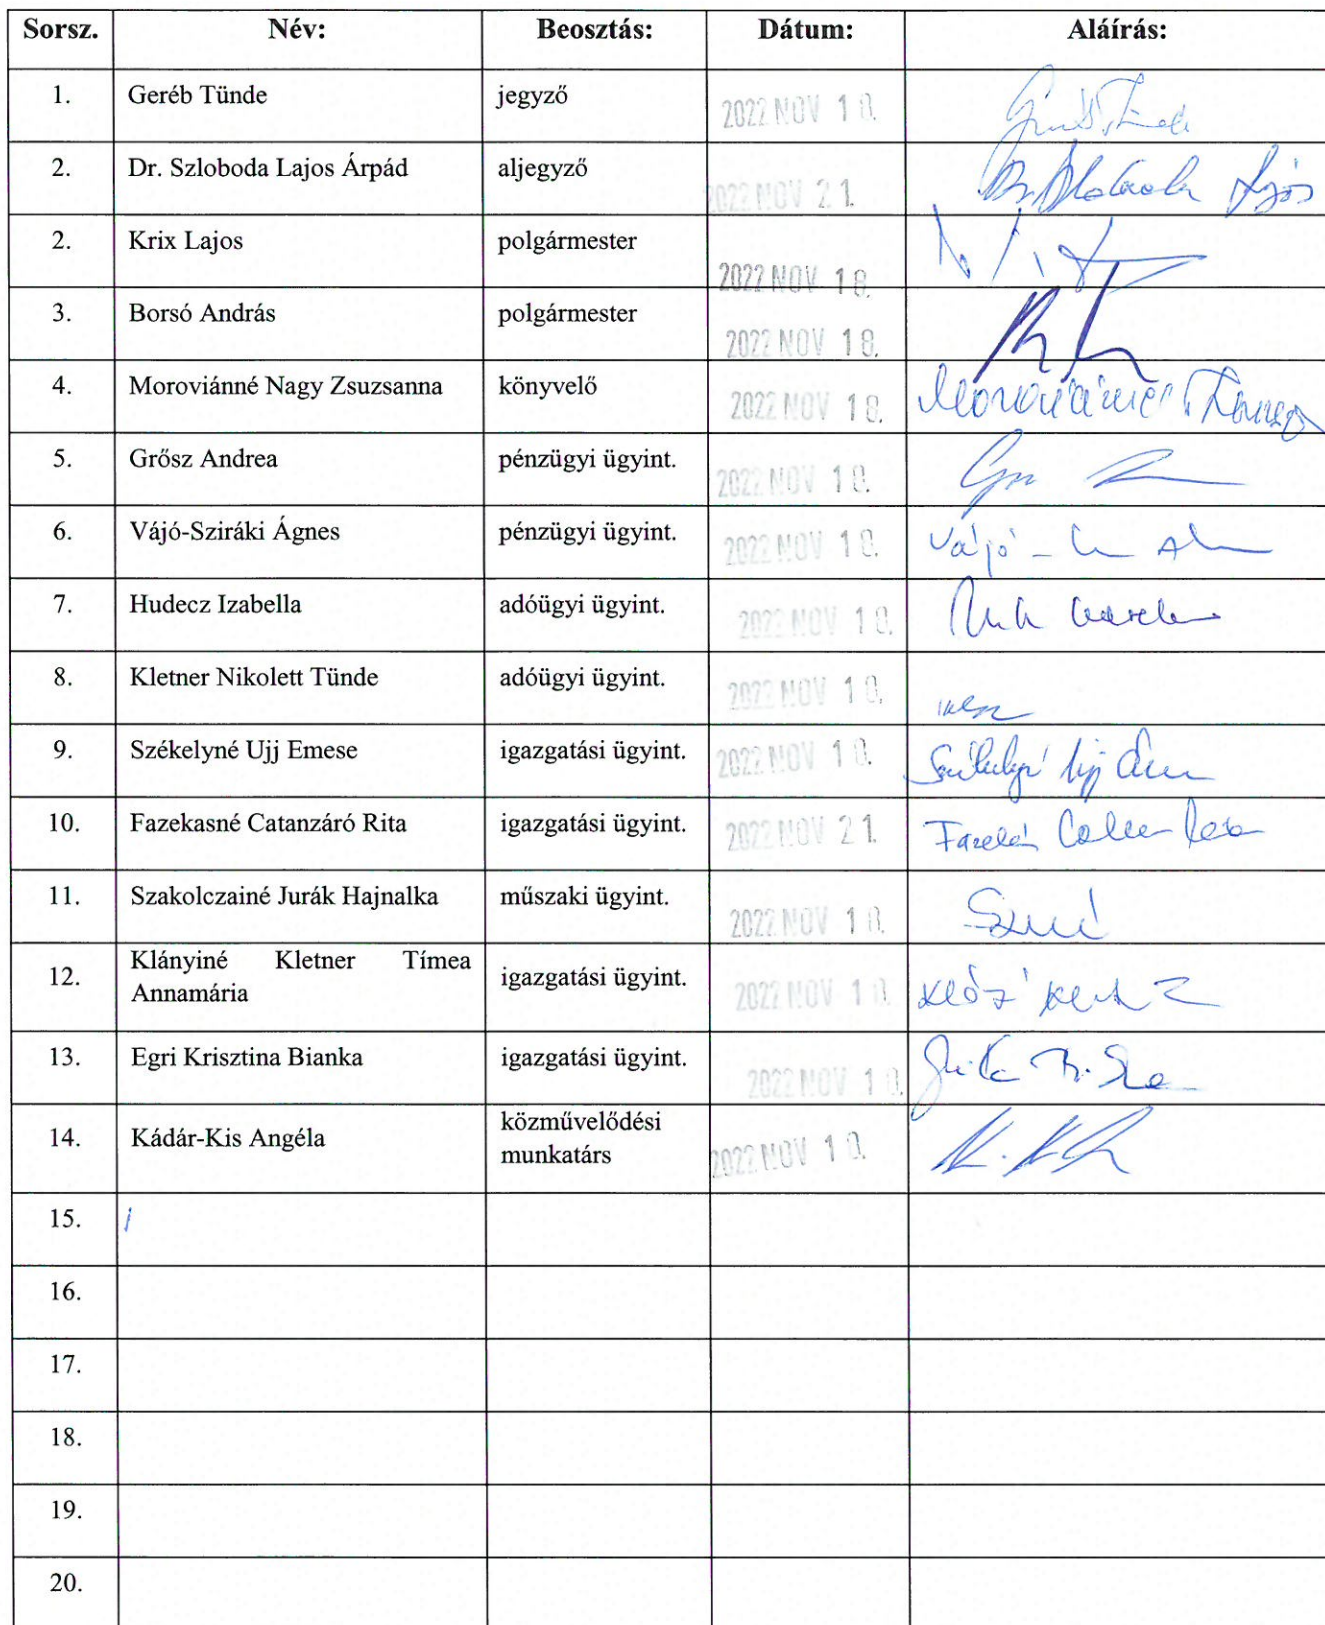 Sorsz. Név: Beosztás: Dátum: Aláírás:
1. Geréb Tünde jegyző 2022 NOV 18.
2. Dr. Szloboda Lajos Árpád aljegyző 2022 NOV 21.
2. Krix Lajos polgármester 2022 NOV 18.
3. Borsó András polgármester 2022 NOV 18.
4. Moroviánné Nagy Zsuzsanna könyvelő 2022 NOV 18.
5. Grősz Andrea pénzügyi ügyint. 2022 NOV 18.
6. Vájó-Sziráki Ágnes pénzügyi ügyint. 2022 NOV 18. Vájó-
7. Hudecz Izabella adóügyi ügyint. 2022 NOV 18.
8. Kletner Nikolett Tünde adóügyi ügyint. 2022 NOV 18.
9. Székelyné Ujj Emese igazgatási ügyint. 2022 NOV 18.
10. Fazekasné Catanzáró Rita igazgatási ügyint. 2022 NOV 21.
11. Szakolczainé Jurák Hajnalka műszaki ügyint. 2022 NOV 18.
12. Klányiné Kletner Tímea
Annamária igazgatási ügyint. 2022 NOV 18.
13. Egri Krisztina Bianka igazgatási ügyint. 2022 NOV 18.
14. Kádár-Kis Angéla közművelődési
munkatárs 2022 NOV 18.
15.
16.
17.
18.
19.
20.